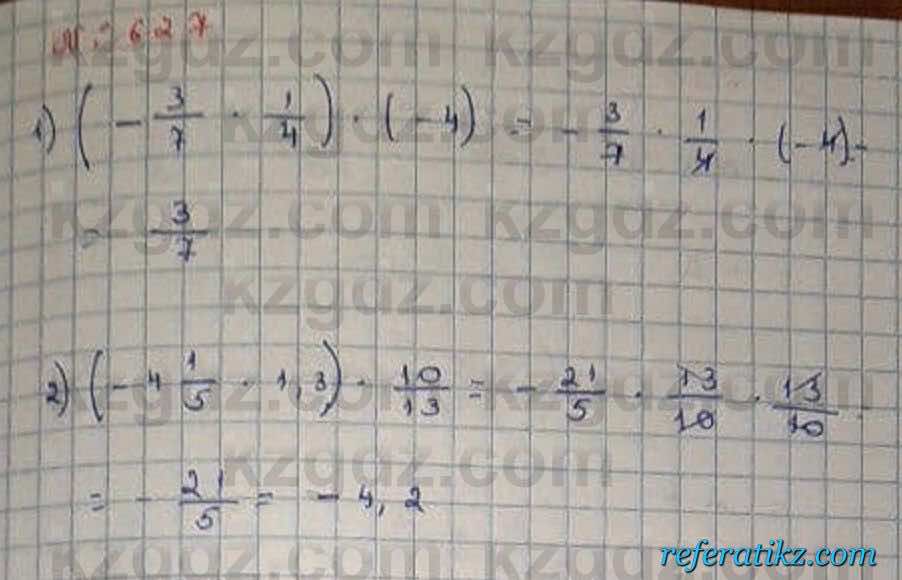 № 627
1) (- 3/7 · 1/4) · (-4) = - 3/7 · 1/4 · (-4) =
= 3/7
2) (- 4 1/5 · 1,3) · 10/13 = - 21/5 · 13/10 · 13/10 =
= - 21/5 = - 4,2
kzgdz.com kzgdz.com
kzgdz.com kzgdz.com
kzgdz.com
kzgdz.com kzgdz.com
kzgdz.com
kzgdz.com kzgdz.com
referatikz.com